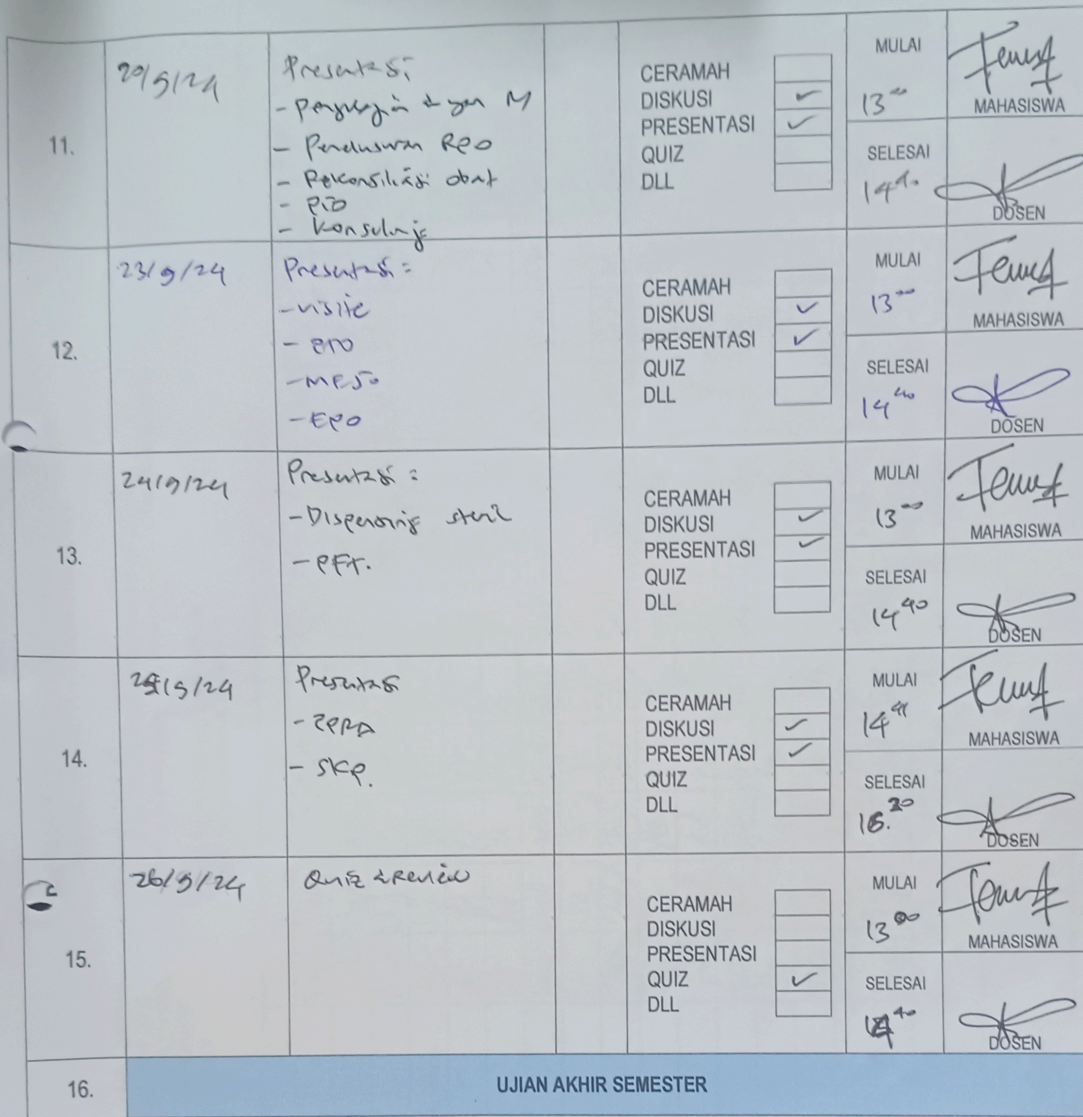 11.
20/9/24
Presentasi
- Pengkajian & yan M
- Penelusuran RPO
- Rekonsiliasi obat
- PIO
- Konseling
CERAMAH
DISKUSI ✓
PRESENTASI ✓
QUIZ
DLL
MULAI
13.00
MAHASISWA
SELESAI
14.40
DOSEN
12.
23/9/24
Presentasi :
- visite
- PTO
- MESO
- EPO
CERAMAH
DISKUSI ✓
PRESENTASI ✓
QUIZ
DLL
MULAI
13.00
MAHASISWA
SELESAI
14.40
DOSEN
13.
24/9/24
Presentasi :
- Dispensing steril
- PFT.
CERAMAH
DISKUSI ✓
PRESENTASI ✓
QUIZ
DLL
MULAI
13.00
MAHASISWA
SELESAI
14.40
DOSEN
14.
/9/24
Presentasi
- PPRA
- SKP.
CERAMAH
DISKUSI ✓
PRESENTASI ✓
QUIZ
DLL
MULAI
MAHASISWA
SELESAI
16.20
DOSEN
15.
26/9/24
Quiz & Review
CERAMAH
DISKUSI
PRESENTASI
QUIZ ✓
DLL
MULAI
13.00
MAHASISWA
SELESAI
14.40
DOSEN
16.
UJIAN AKHIR SEMESTER